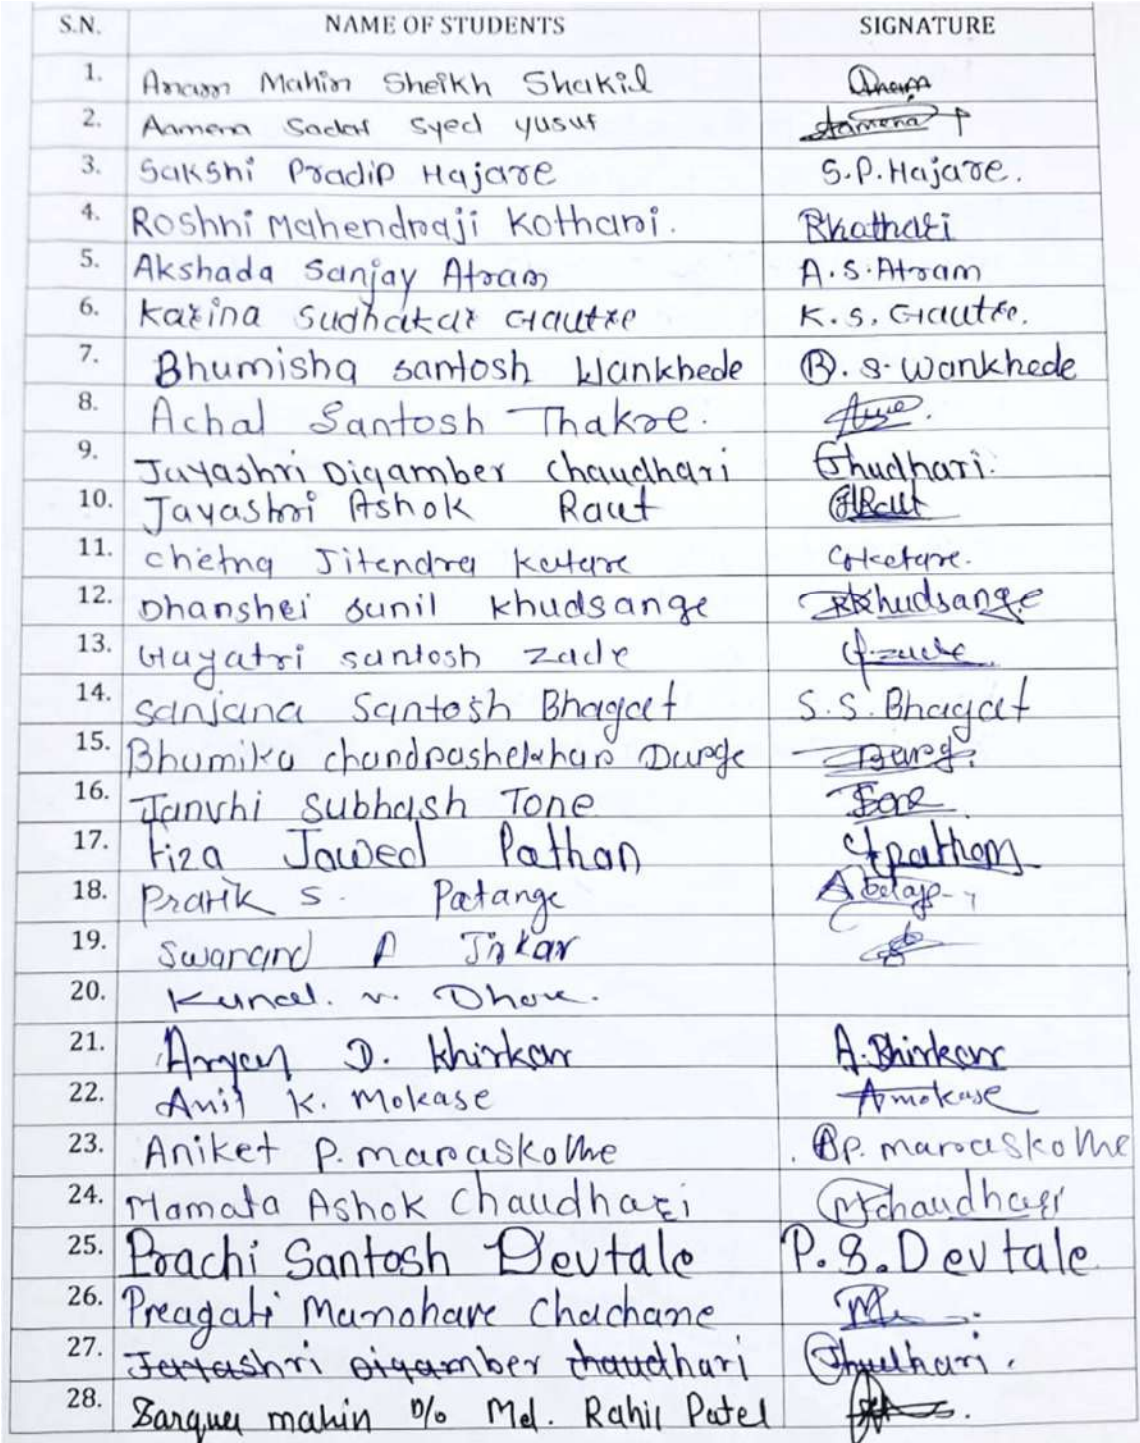 S.N. NAME OF STUDENTS SIGNATURE
1. Anam Mahin Sheikh Shakil Anam
2. Aamena Sadaf Syed Yusuf Aamena
3. Sakshi Pradip Hajare S.P. Hajare.
4. Roshni Mahendraji Kothari. RKothari
5. Akshada Sanjay Atram A.S. Atram
6. Karina Sudhakar Gautre K.S. Gautre.
7. Bhumisha santosh Wankhede B. S. Wankhede
8. Achal Santosh Thakre.
9. Jayashri Digamber chaudhari Chudhari.
10. Jayashri Ashok Raut JARaut
11. chetna Jitendra Katare
12. Dhanshri sunil khudsange Khudsange
13. Gayatri santosh zade G.zade
14. sanjana Santosh Bhagat S.S. Bhagat
15. Bhumika chandrashekhar Durge Durge
16. Janvhi subhash Tone Tone
17. Fiza Jawed Pathan Pathan
18. Pratik S. Patange
19. Swanand P Jirkar
20. Kunal. v. Dhore.
21. Aryan D. Khirkar A. Khirkar
22. Anil K. Mokase Amokase
23. Aniket P. maraskolhe AP. maraskolhe
24. Mamata Ashok Chaudhari Mchaudhari
25. Prachi Santosh Devtale P.S. Devtale
26. Preagati Manohare Chachane
27. Jayashri Digamber chaudhari Chudhari.
28. mahin D/o Md. Rahil Patel